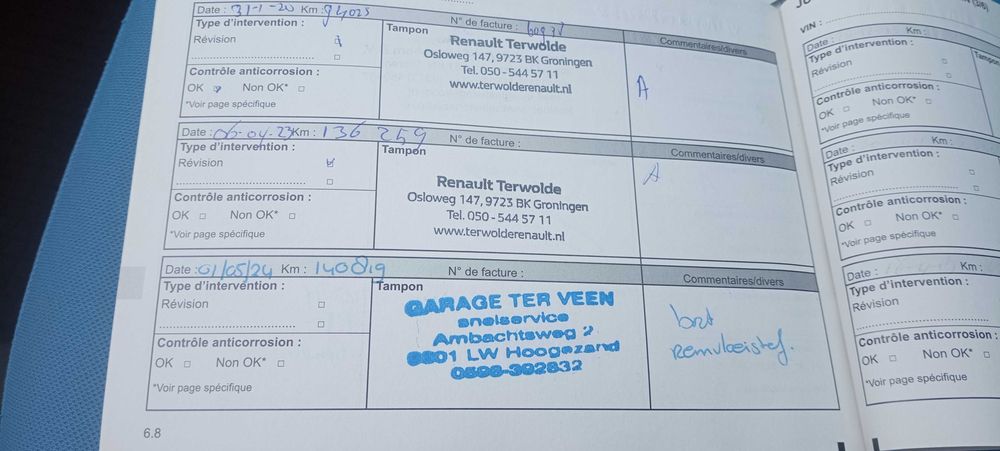 Date : 31-1-20 Km : 94025 N° de facture :
Type d'intervention :
Révision
Contrôle anticorrosion :
OK Non OK*
*Voir page spécifique
Tampon
Renault Terwolde
Osloweg 147, 9723 BK Groningen
Tel. 050-544 57 11
www.terwolderenault.nl
Commentaires/divers
A
Date : 06-04-23 Km : 136 259 N° de facture :
Type d'intervention :
Révision
Contrôle anticorrosion :
OK Non OK*
*Voir page spécifique
Tampon
Renault Terwolde
Osloweg 147, 9723 BK Groningen
Tel. 050-544 57 11
www.terwolderenault.nl
Commentaires/divers
A
Date : 01/05/24 Km : 140819 N° de facture :
Type d'intervention :
Révision
Contrôle anticorrosion :
OK Non OK*
*Voir page spécifique
Tampon
GARAGE TER VEEN
snelservice
Ambachtsweg 2
9601 LW Hoogezand
0598-392832
Commentaires/divers
remvloeistof.
6.8
(3/6)
VIN :
Date : Km :
Type d'intervention :
Révision
Contrôle anticorrosion :
OK Non OK*
*Voir page spécifique
Tampon
Date : Km :
Type d'intervention :
Révision
Contrôle anticorrosion :
OK Non OK*
*Voir page spécifique
Date : Km :
Type d'intervention :
Révision
Contrôle anticorrosion :
OK Non OK*
*Voir page spécifique